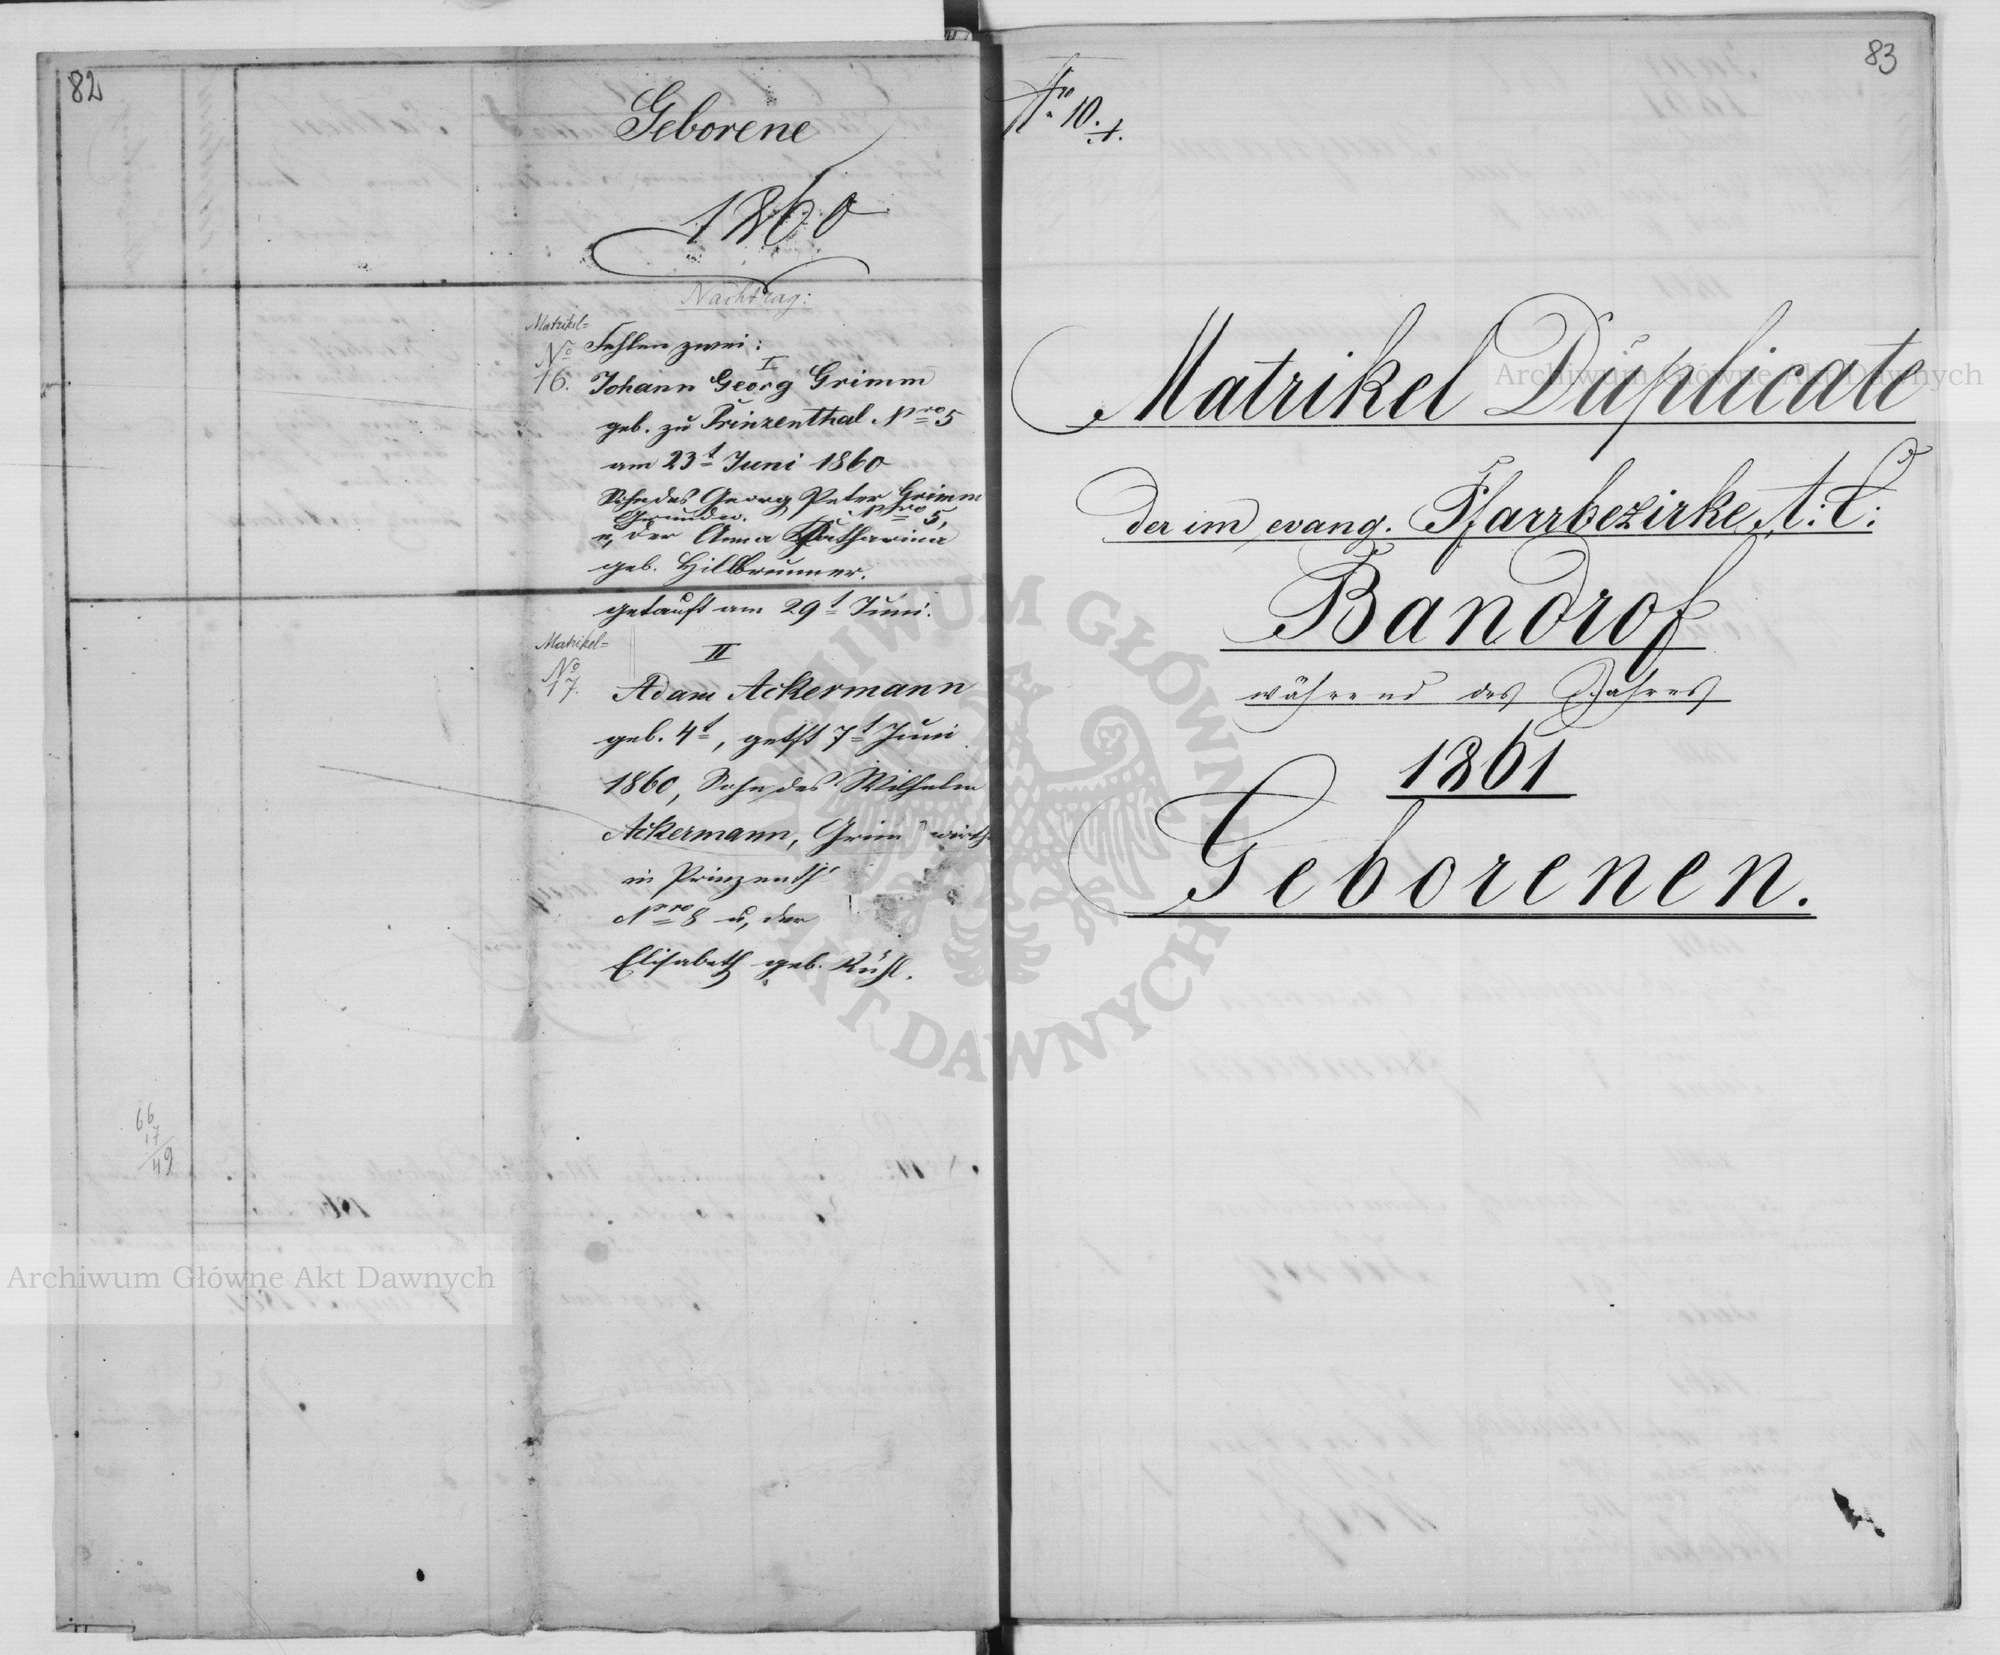 82
Geborene
1860
Nachtrag:
Matrikel=
No
16.
Fehlen zwei:
I
Johann Georg Grimm
geb. zu Prinzenthal Nro 5
am 23t Juni 1860
Sohn des Georg Peter Grimm
Nro 5,
u, der Anna Katharina
geb. Hillbrunner.
getauft am 29t Juni.
Matrikel=
No
17.
II
Adam Ackermann
geb. 4t, getft 7t Juni
1860, Sohn des Wilhelm
Ackermann, Grundwirth
in Prinzenth
Nro 8 u, der
Elisabeth geb. Kühl.
66
17
49
83
No. 10.
Matrikel Duplicate
der im evang. Pfarrbezirke A: C:
Bandrof
während des Jahres
1861
Geborenen.
Archiwum Główne Akt Dawnych
Archiwum Główne Akt Dawnych
ARCHIWUM GŁÓWNE
AKT DAWNYCH